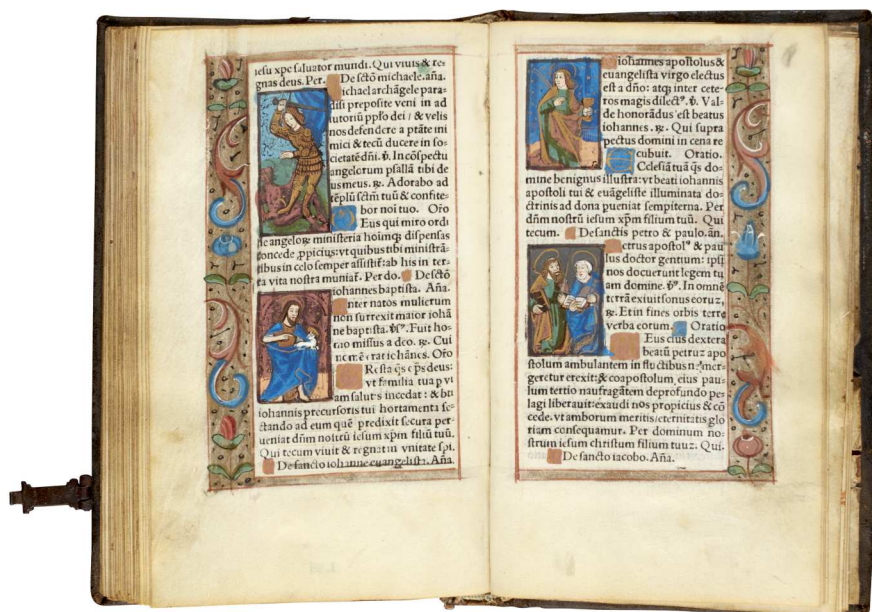 iesu xpe saluator mundi. Qui viuis & re-
gnas deus. Per. De sctõ michaele. aña.
ichael archãgele para-
disi preposite veni in ad
iutoriũ ppło dei / & velis
nos defendere a ptãte ini
mici / & tecũ ducere in so-
cietatẽ dñi. ꝟ. In cõspectu
angelorum psallã tibi de
us meus. ꝶ. Adorabo ad
tẽplũ sctm̃ tuũ & confite-
bor noi tuo. Oro
Eus qui miro ordi
ne angeloꝝ ministeria hoimq̃ dispensas
concede ,ppicius: vt quibus tibi ministrã-
tibus in celo semper assistit̃: ab his in ter-
ra vita nostra muniat̃. Per do. De sctõ
iohannes baptista. Aña.
nter natos mulierum
non surrexit maior iohã
ne baptista. ꝟ. Fuit ho-
mo missus a deo. ꝶ. Cui
nomẽ erat iohãnes. Oro
Resta q̃s o͂ps deus:
vt familia tua p vi
am salutis incedat: & bti
iohannis precursoris tui hortamenta se-
ctando ad eum quẽ predixit secura per-
ueniat dñm nostrũ iesum xp̃m filiũ tuũ.
Qui tecum viuit & regnat in vnitate spi.
De sancto iohanne euangelista. Aña.
iohannes apostolus &
euangelista virgo electus
est a dño: atq; inter cete-
ros magis dilectꝰ. ꝟ. Val-
de honorãdus est beatus
iohannes. ꝶ. Qui supra
pectus domini in cena re
cubuit. Oratio.
Cclesiã tuã q̃s do-
mine benignus illustra: vt beati iohannis
apostoli tui & euãgeliste illuminata do-
ctrinis ad dona pueniat sempiterna. Per
dñm nostrũ iesum xp̃m filium tuũ. Qui
tecum. De sanctis petro & paulo. an.
etrus apostolꝰ & pau
lus doctor gentium: ipsi
nos docuerunt legem tu
am domine. ꝟ. In omnẽ
terrã exiuit sonus eoruz,
ꝶ. Et in fines orbis terre
verba eorum. Oratio
Eus cuius dextera
beatũ petruz apo
stolum ambulantem in fluctibus ne mer-
geretur erexit: & coapostolum eius pau-
lum tertio naufragãtem de profundo pe-
lagi liberauit: exaudi nos propicius & cõ
cede. vt amborum meritis eternitatis glo
riam consequamur. Per dominum no-
strum iesum christum filium tuuz. Qui.
De sancto iacobo. Aña.